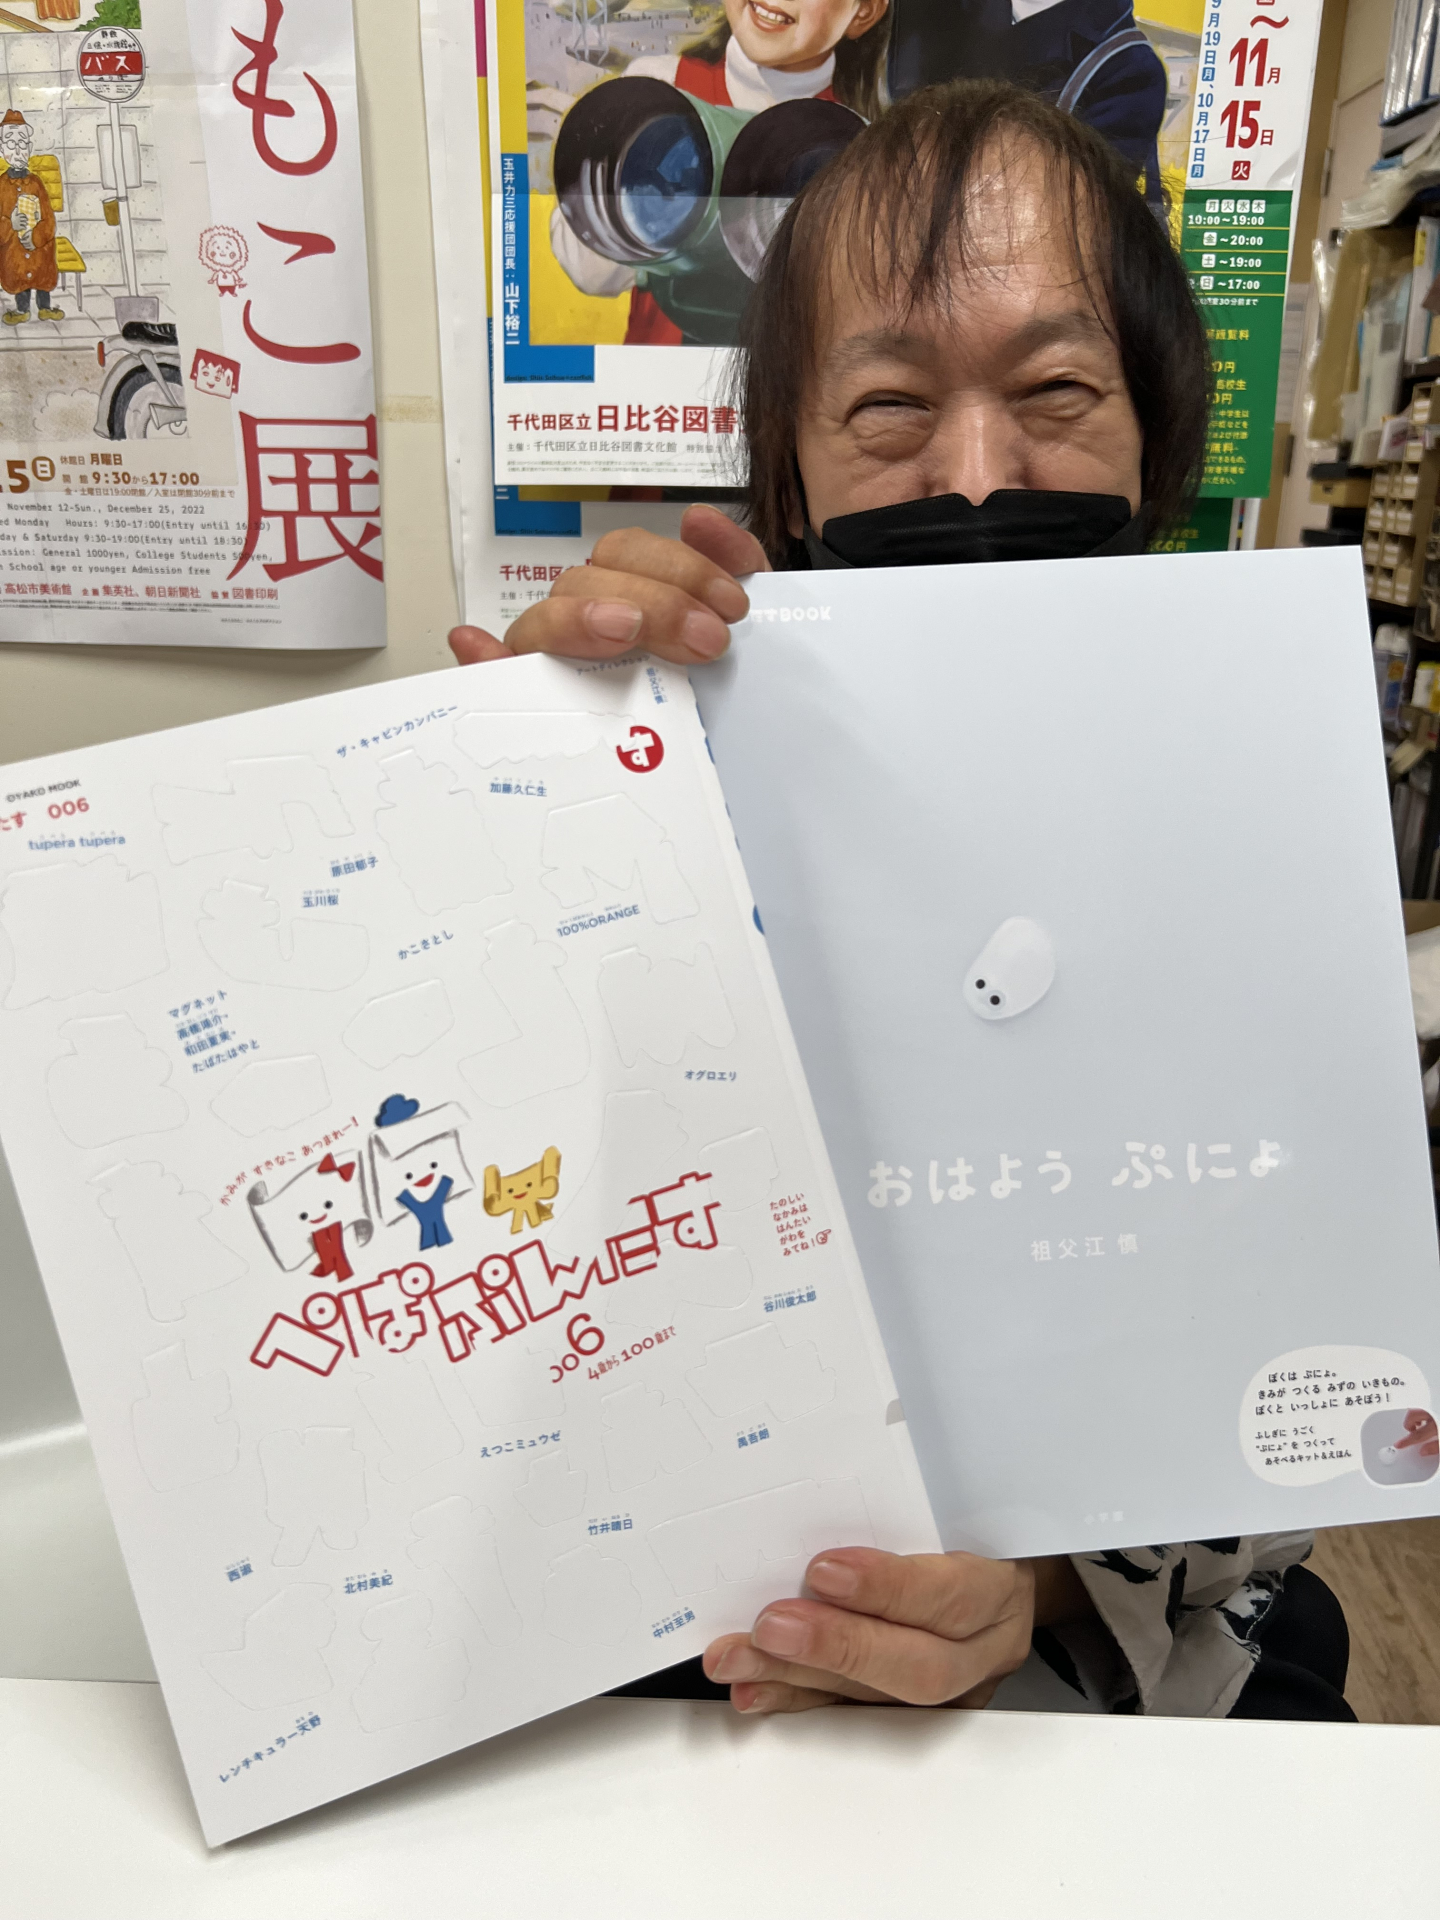 バス
もこ展
5日
休館日 月曜日
開館 9:30から17:00
金・土曜日は19:00閉館／入室は閉館30分前まで
November 12-Sun., December 25, 2022
ed Monday Hours: 9:30-17:00(Entry until 16:30)
day & Saturday 9:30-19:00(Entry until 18:30)
ission: General 1000yen, College Students 500yen,
School age or younger Admission free
高松市美術館 主催 集英社、朝日新聞社 協賛 図書印刷
玉井力三応援団団長：山下裕二
千代田区立日比谷図書
主催：千代田区立日比谷図書文化館 特別協
千代田区
主催：千代
9月19日月、10月17日月
〜11月15日火
月火水木
10:00〜19:00
金〜20:00
土〜19:00
日〜17:00
アートディレクション
祖父江慎
す
ザ・キャビンカンパニー
加藤久仁生
OYAKO MOOK
たす 006
tupera tupera
原田郁子
玉川桜
かこさとし
100%ORANGE
マグネット
高橋雄介・
和田夏実・
たばたはやと
オグロエリ
かみが すきなこ あつまれー！
ぺぱぷんたす
006
4歳から100歳まで
たのしい
なかみは
はんたい
がわを
みてね！
谷川俊太郎
えつこミュウゼ
禹吾朗
竹井晴日
西淑
北村美紀
中村至男
レンチキュラー天野
すBOOK
おはよう ぷにょ
祖父江 慎
ぼくは ぷにょ。
きみが つくる みずの いきもの。
ぼくと いっしょに あそぼう！
ふしぎに うごく
"ぷにょ"を つくって
あそべるキット＆えほん
小学館